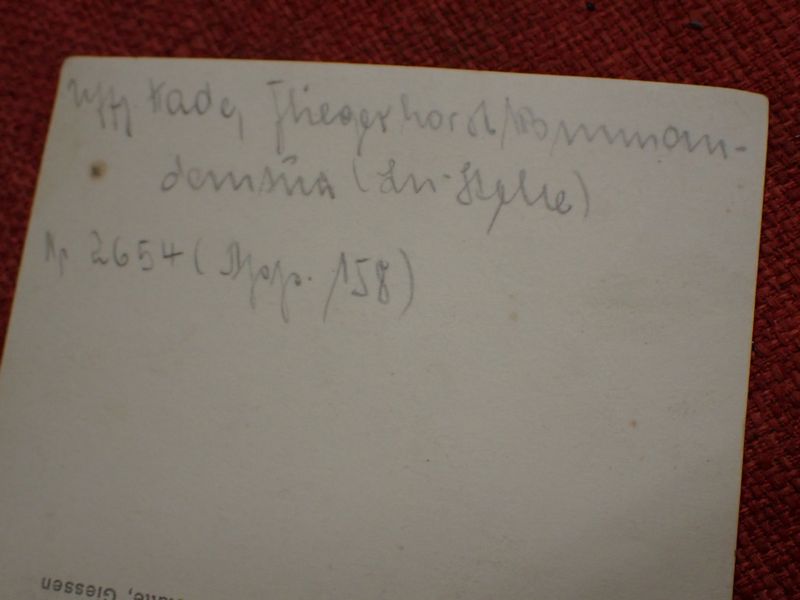 Uffz. Kade, Fliegerhorst/Komman-
dantur (Ln-Stelle)
2654 (App. 158)
Giessen